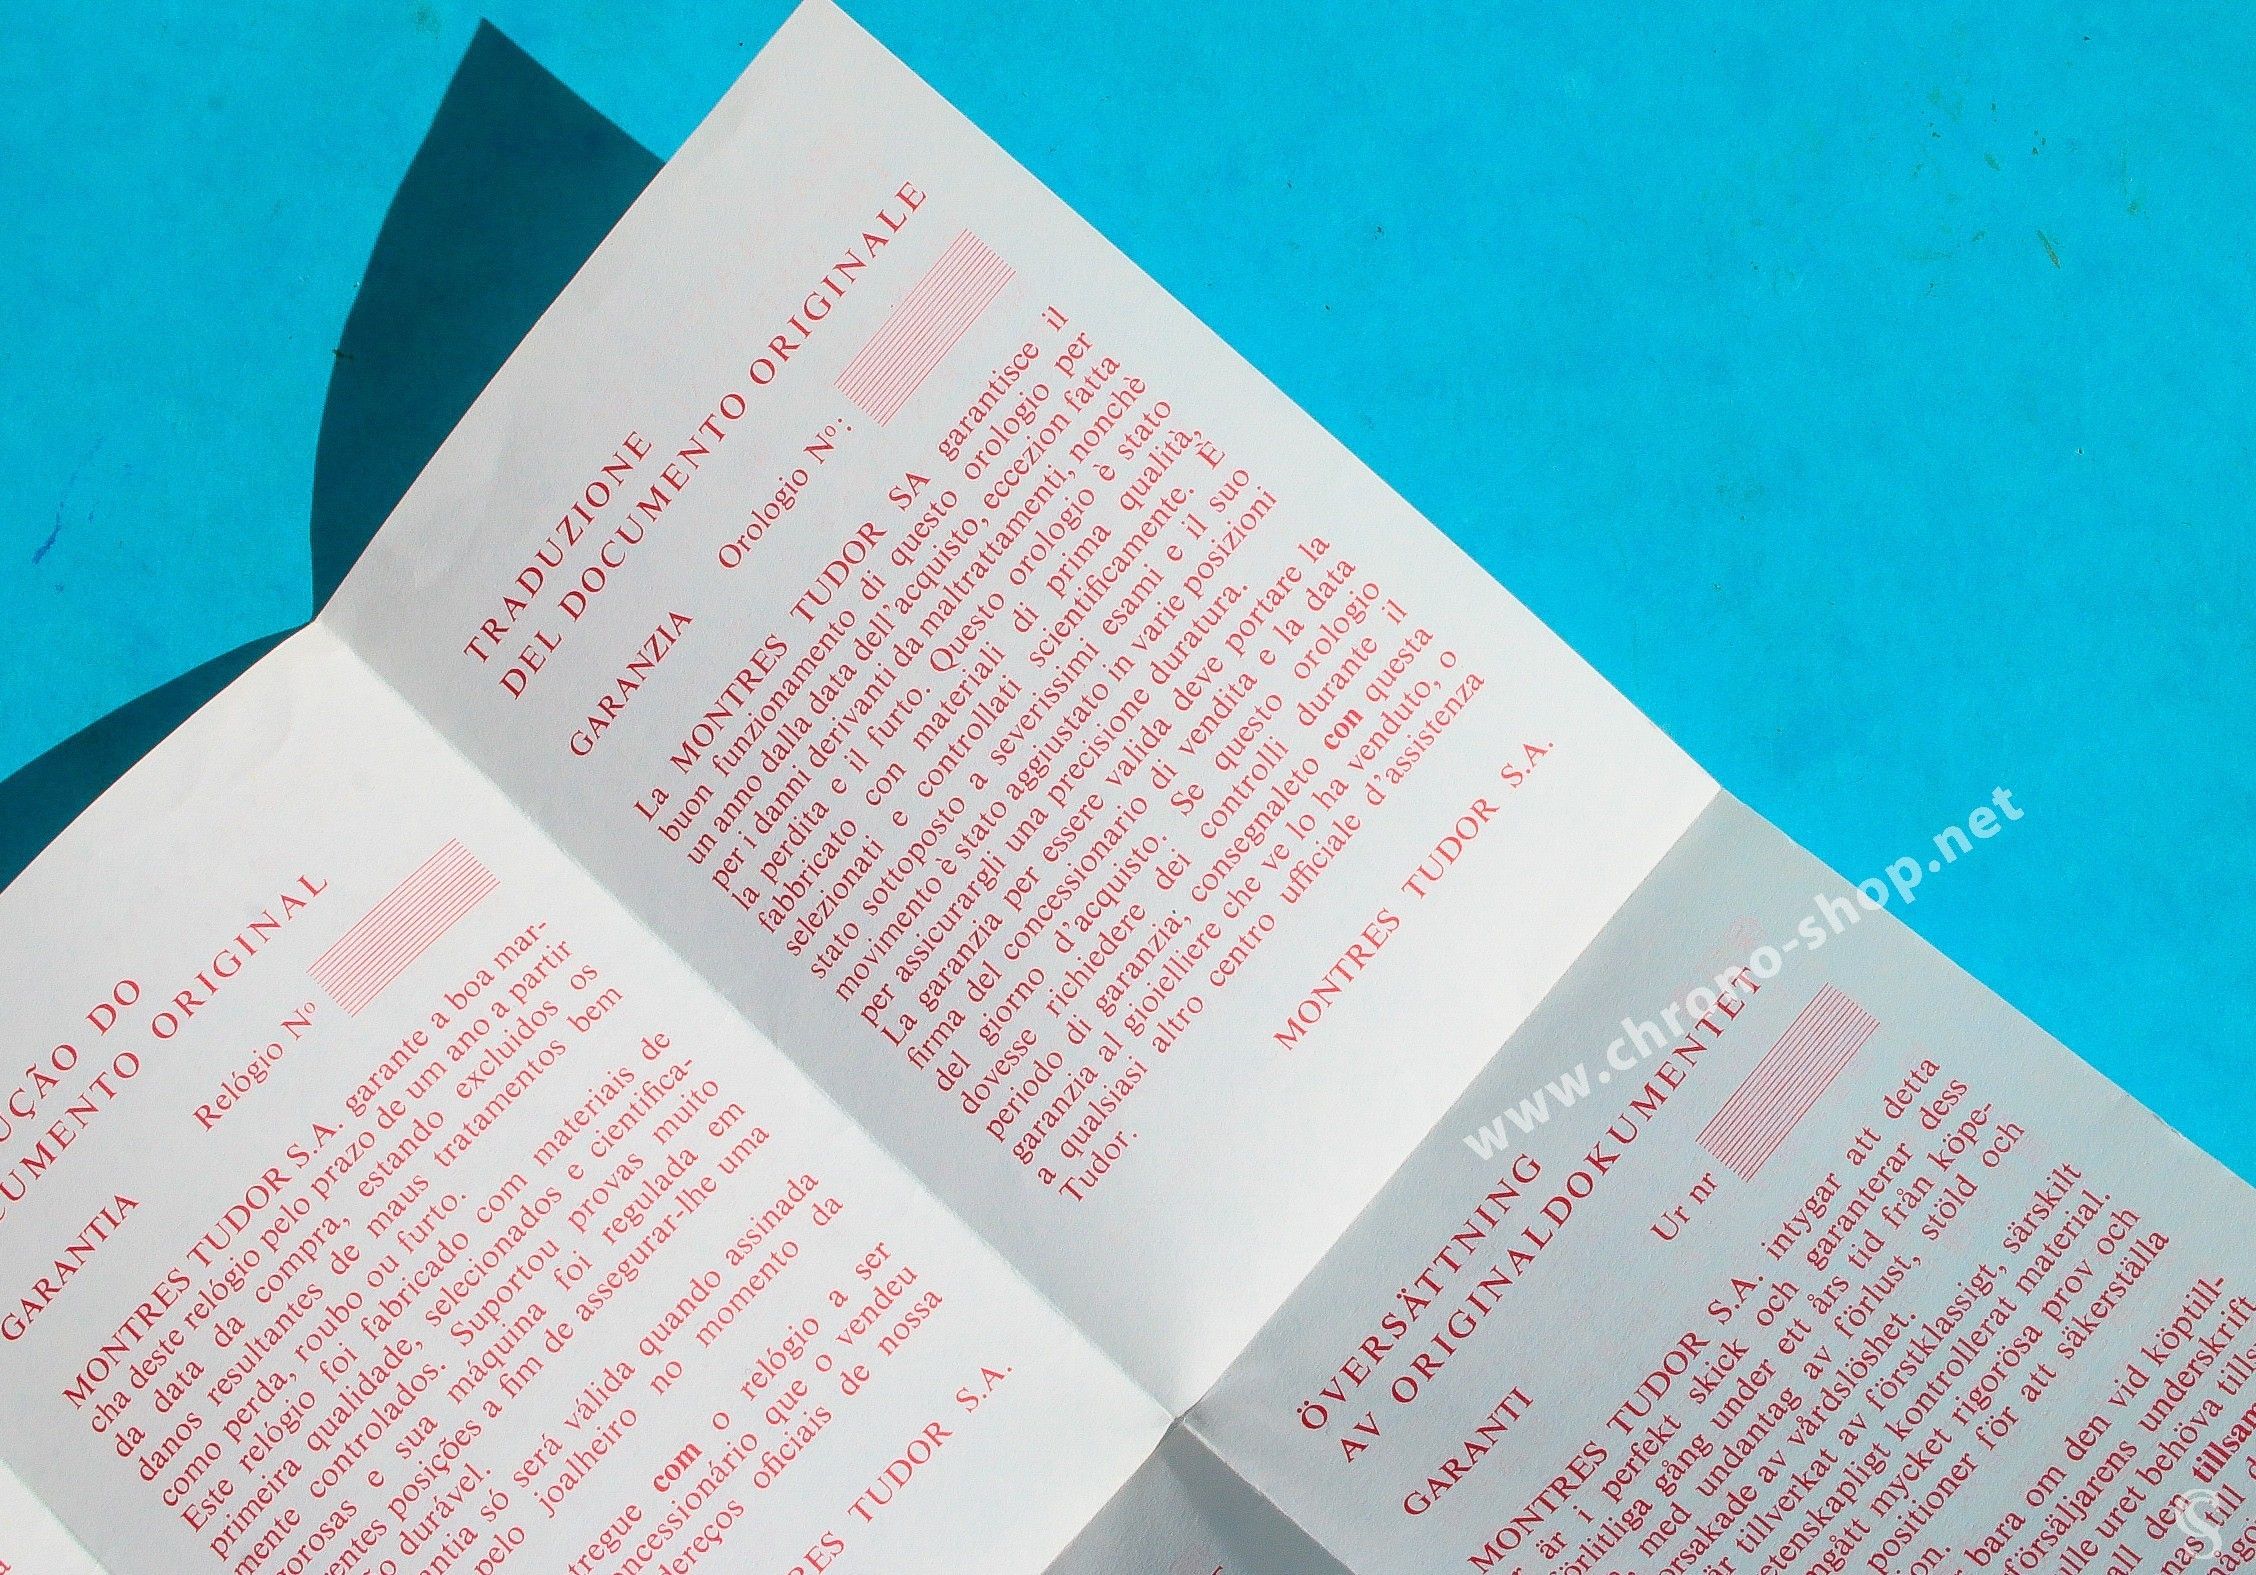 TRADUZIONE
DEL DOCUMENTO ORIGINALE
GARANZIA Orologio Nº:
La MONTRES TUDOR SA garantisce il
buon funzionamento di questo orologio per
un anno dalla data dell'acquisto, eccezion fatta
per i danni derivanti da maltrattamenti, nonchè
la perdita e il furto. Questo orologio è stato
fabbricato con materiali di prima qualità,
selezionati e controllati scientificamente. È
stato sottoposto a severissimi esami e il suo
movimento è stato aggiustato in varie posizioni
per assicurargli una precisione duratura.
La garanzia per essere valida deve portare la
firma del concessionario di vendita e la data
del giorno d'acquisto. Se questo orologio
dovesse richiedere dei controlli durante il
periodo di garanzia, consegnaleto con questa
garanzia al gioielliere che ve lo ha venduto, o
a qualsiasi altro centro ufficiale d'assistenza
Tudor.
MONTRES TUDOR S.A.
UÇÃO DO
CUMENTO ORIGINAL
GARANTIA Relógio Nº
MONTRES TUDOR S.A. garante a boa mar-
cha deste relógio pelo prazo de um ano a partir
da data da compra, estando excluidos os
danos resultantes de maus tratamentos bem
como perda, roubo ou furto.
Este relógio foi fabricado com materiais de
primeira qualidade, selecionados e cientifica-
mente controlados. Suportou provas muito
gorosas e sua máquina foi regulada em
entes posições a fim de assegurar-lhe uma
o durável.
antia só será válida quando assinada
pelo joalheiro no momento da
tregue com o relógio a ser
oncessionário que o vendeu
dereços oficiais de nossa
RES TUDOR S.A.
ÖVERSÄTTNING
AV ORIGINALDOKUMENTET
GARANTI Ur nr
MONTRES TUDOR S.A. intygar att detta
är i perfekt skick och garanterar dess
förlitliga gång under ett års tid från köpe-
, med undantag av förlust, stöld och
orsakade av vårdslöshet.
är tillverkat av förstklassigt, särskilt
etenskapligt kontrollerat material.
mgått mycket rigorösa prov och
positioner för att säkerställa
on.
bara om den vid köptill-
försäljarens underskrift
ulle uret behöva tills
all den tillsam
nas till
någo
www.chrono-shop.net